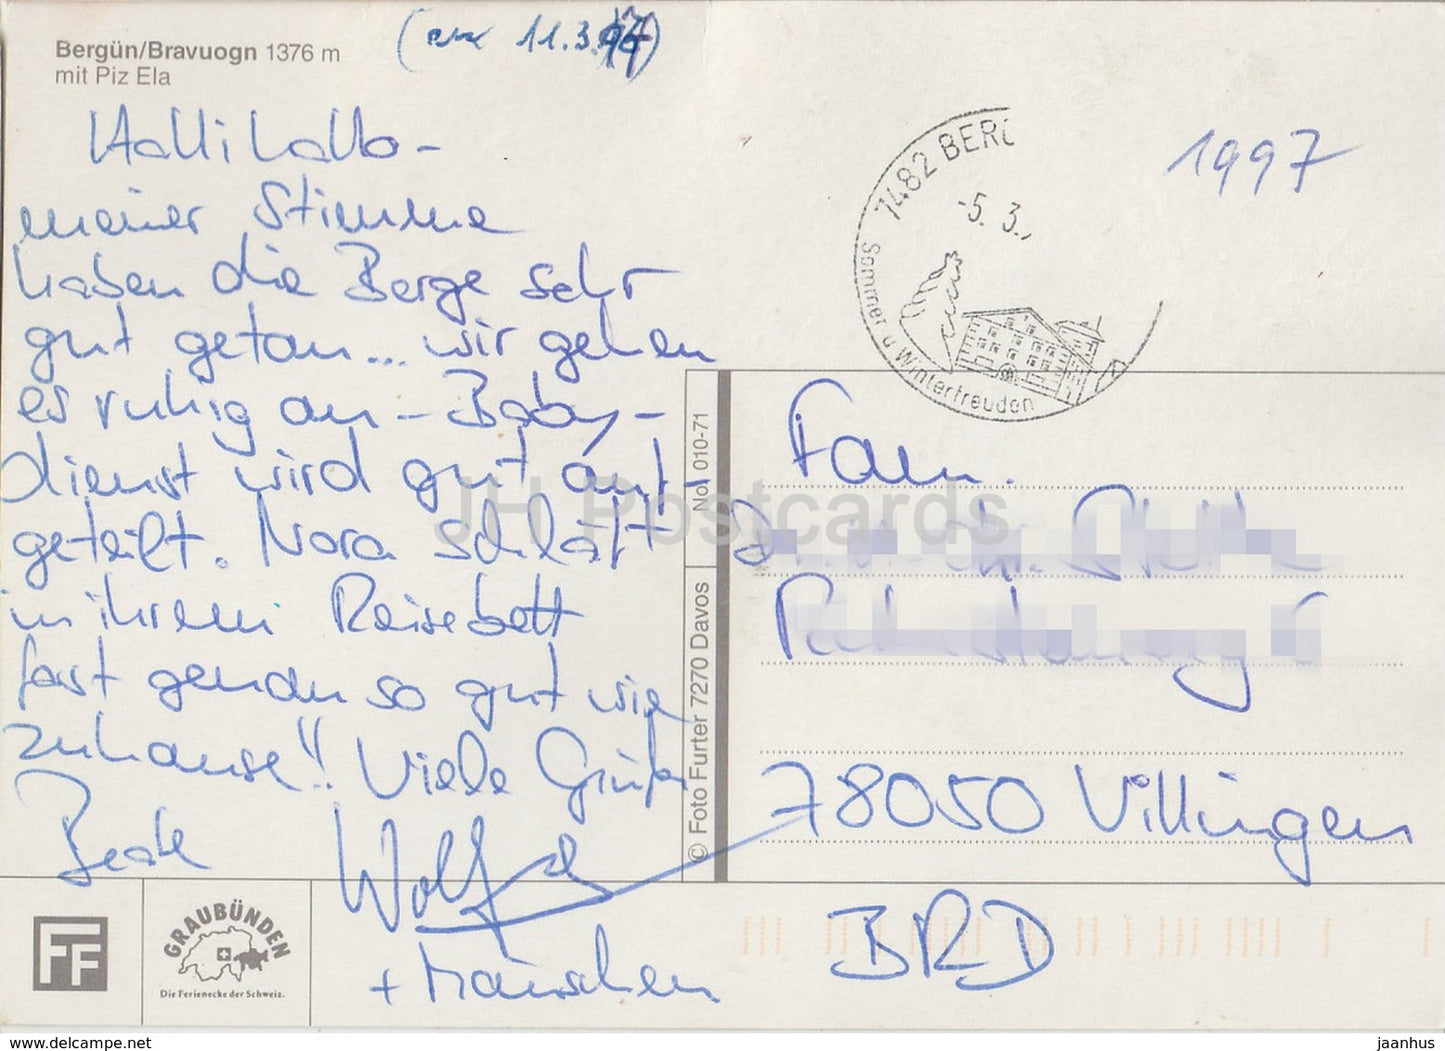 Bergün/Bravuogn 1376 m
mit Piz Ela
11.3.
Halli Hallo -
meiner Stimme
haben die Berge sehr
gut getan... wir gehen
es ruhig an - Baby-
dienst wird gut auf-
geteilt. Nora schläft
in ihrem Reisebett
fast genau so gut wie
zuhause!! Viele Grüße
Beate
Wolf
+ Mäuschen
FF
GRAUBÜNDEN
Die Ferienecke der Schweiz.
No. 010-71
© Foto Furter 7270 Davos
7482 BERG
-5. 3.
Sommer u Winterfreuden
1997
Fam.
78050 Villingen
BRD
JH Postcards
www.delcampe.net
jaanhus